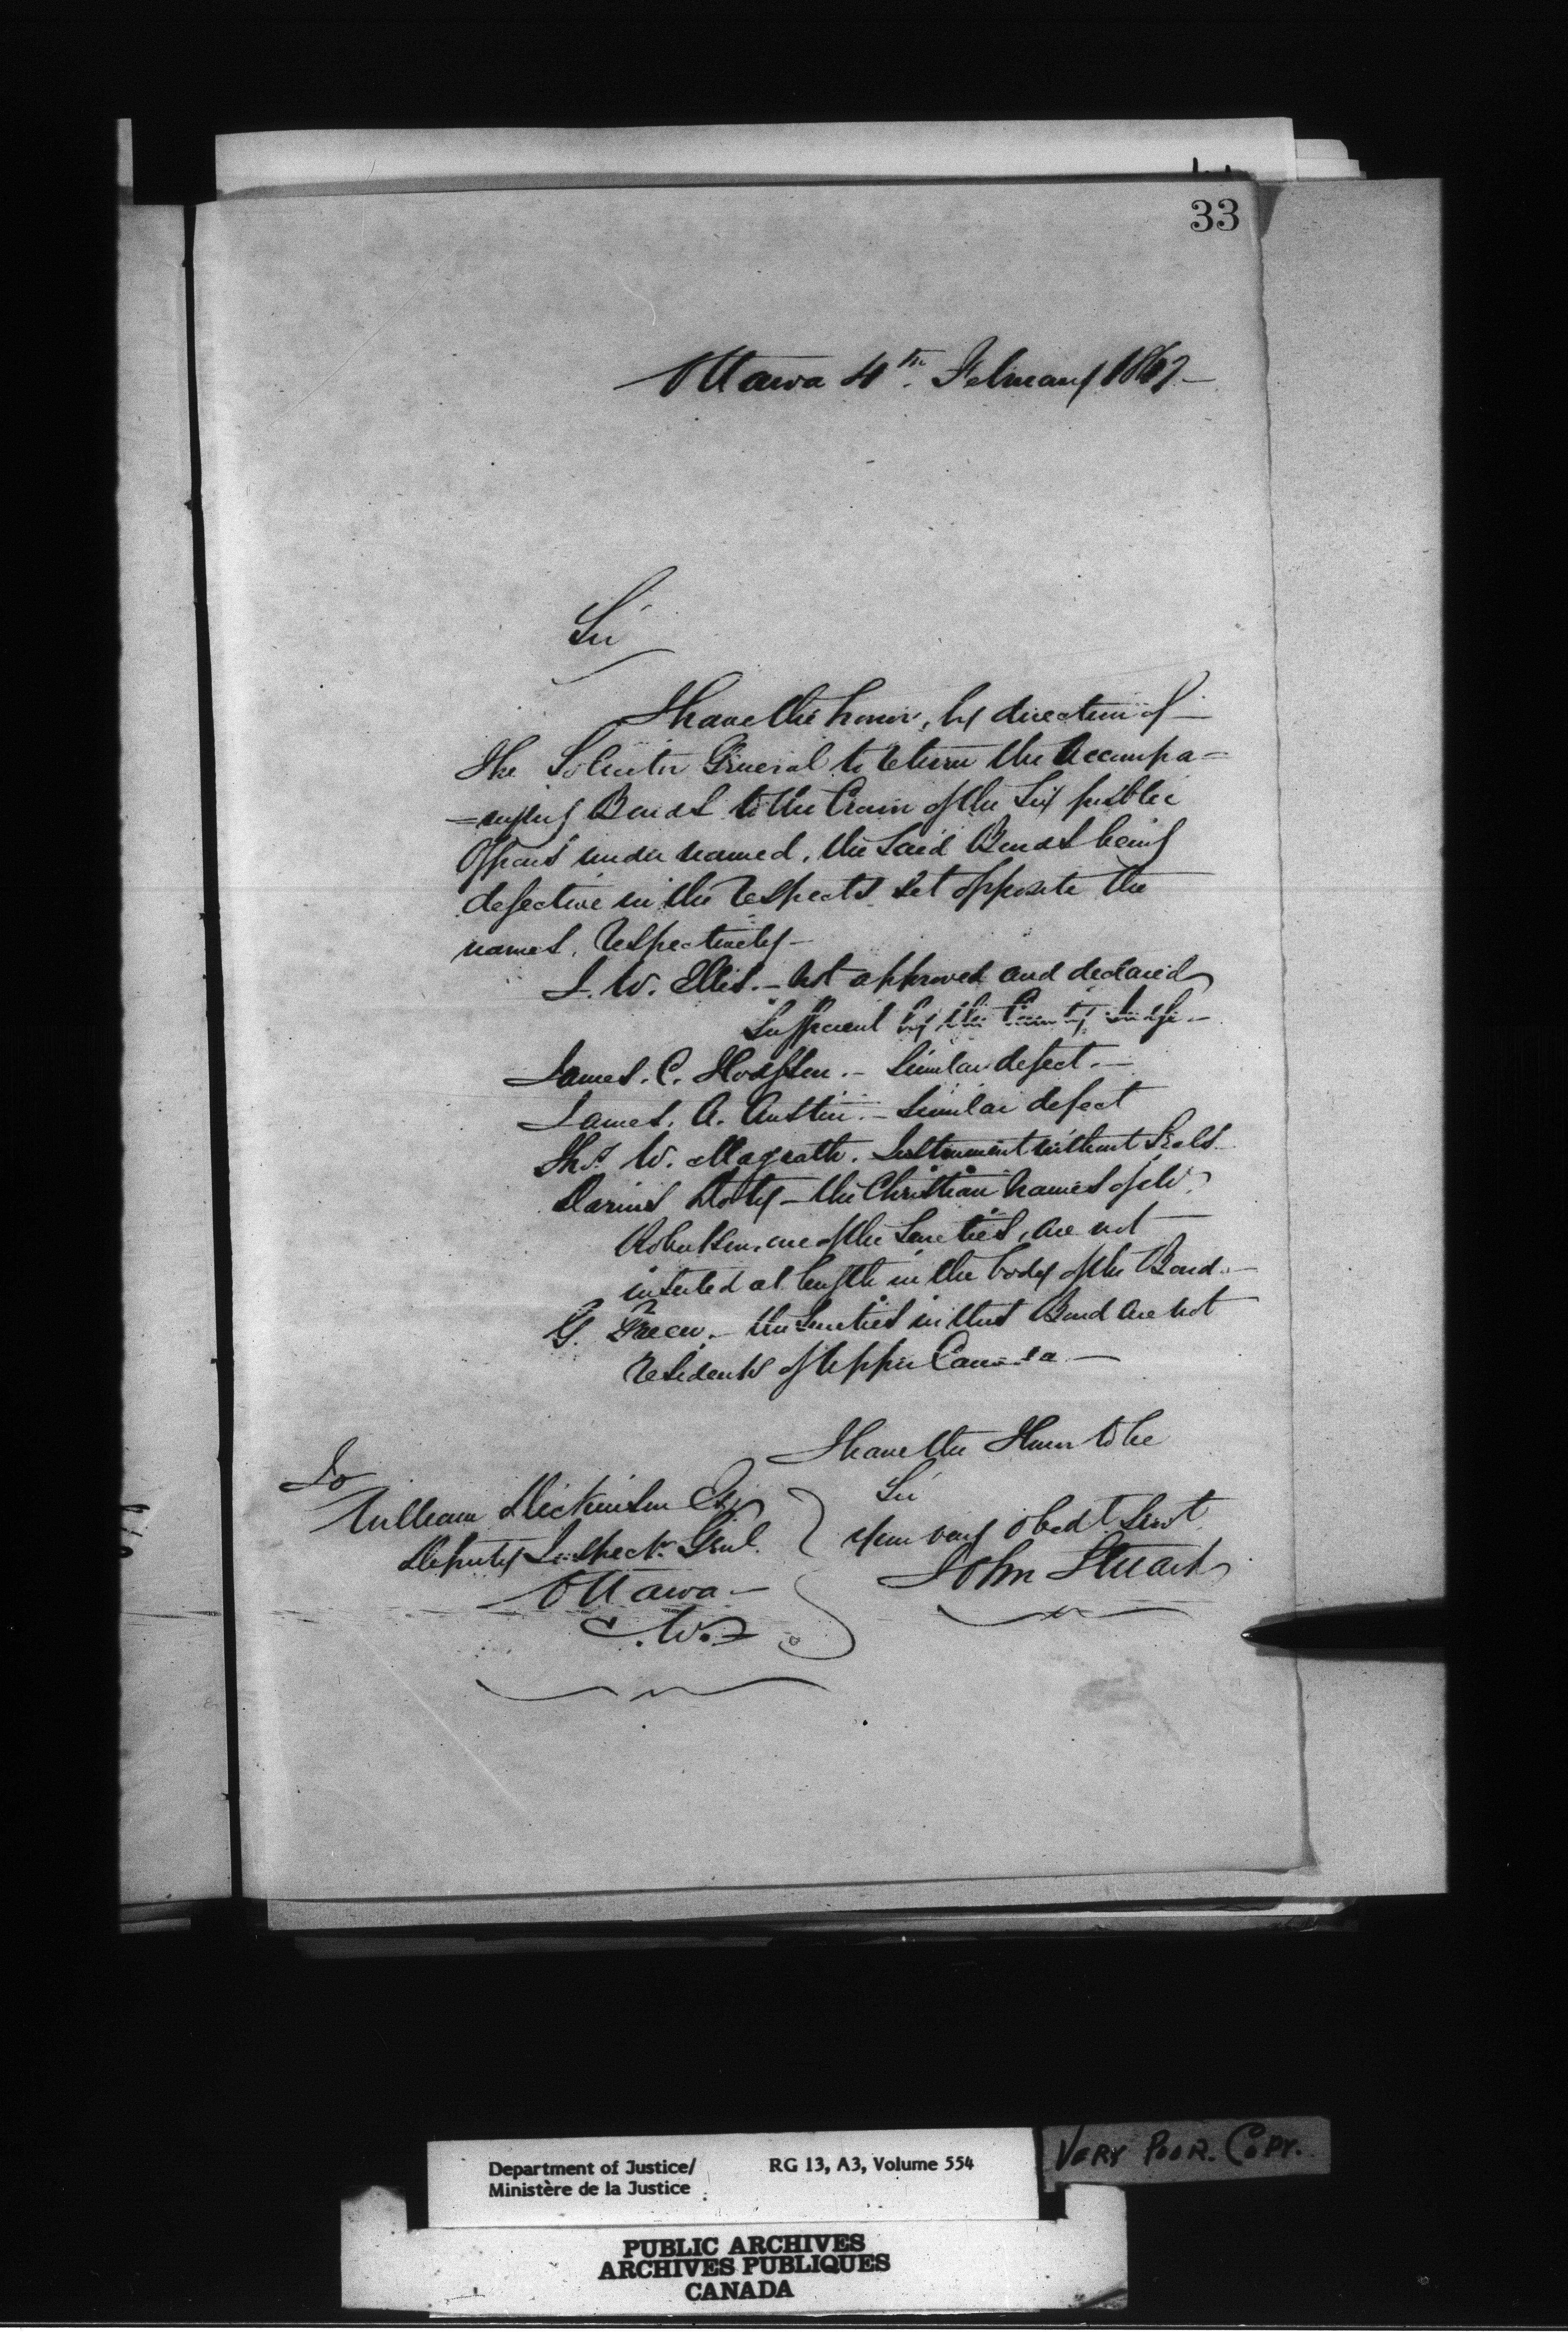 33
Ottawa 4th February 1867—
Sir
I have the honor, by direction of—
the Solicitor General to return the accompa=
=nying Bonds to the Crown of the Six public
Officers under named, the said Bonds being
defective in the respects set opposite the
names, respectively—
J. W. Ellis.— Not approved and declared
sufficient by the County Judge—
James. C. Hodgson.— Similar defect.—
James. A. Austin.— Similar defect
Ths. W. Magrath. Instrument without Seals
Darius Doty— the Christian names of W.
Robertson, one of the Sureties, are not—
inserted at length in the body of the Bond.—
G. Green.— the Sureties in this Bond are not
residents of Upper Canada—
I have the Honor to be
Sir
Your very obedt. Servt.
John Stuart
To
William Dickinson Esq
Deputy Inspectr. Genl.
Ottawa—
C.W.
Department of Justice/
Ministère de la Justice
RG 13, A3, Volume 554
VERY POOR. COPY.
PUBLIC ARCHIVES
ARCHIVES PUBLIQUES
CANADA